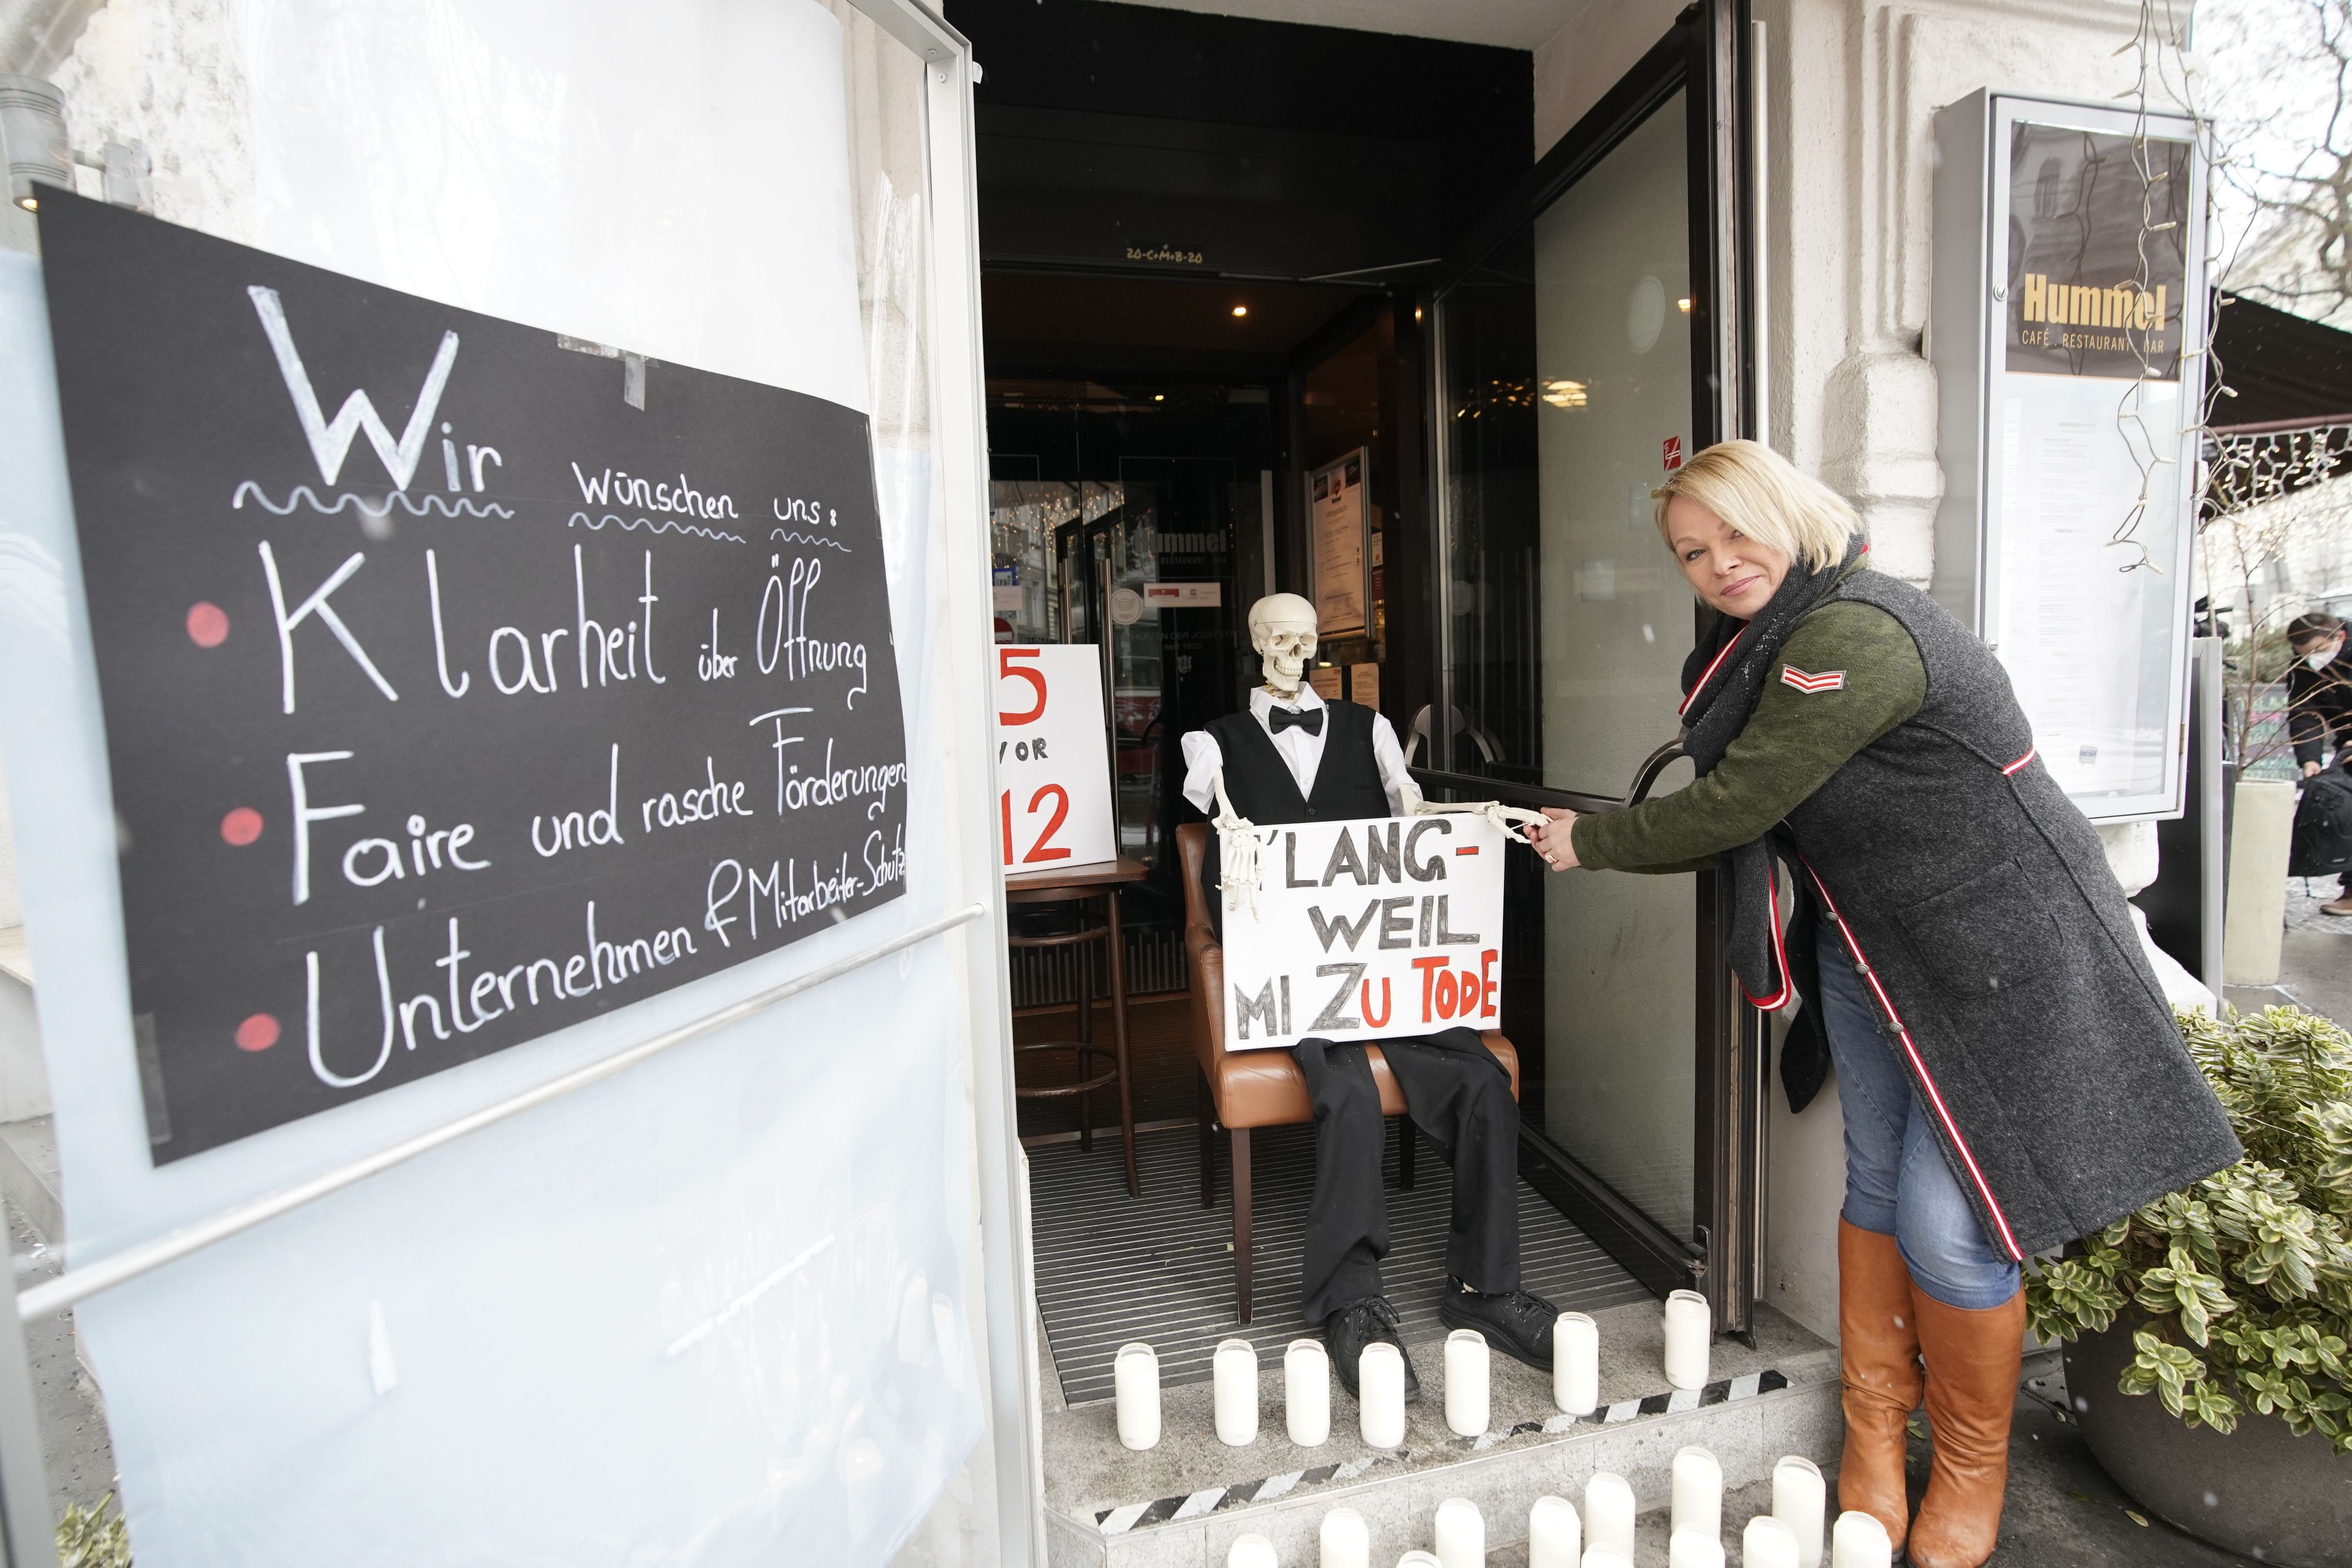 Wir wünschen uns:
Klarheit über Öffnung
Faire und rasche Förderungen
Unternehmen & Mitarbeiter-Schutz
20-C+M+B-20
5
VOR
12
'LANG-
WEIL
MI ZU TODE
Hummel
CAFÉ . RESTAURANT . BAR
ummel
RESTAURANT